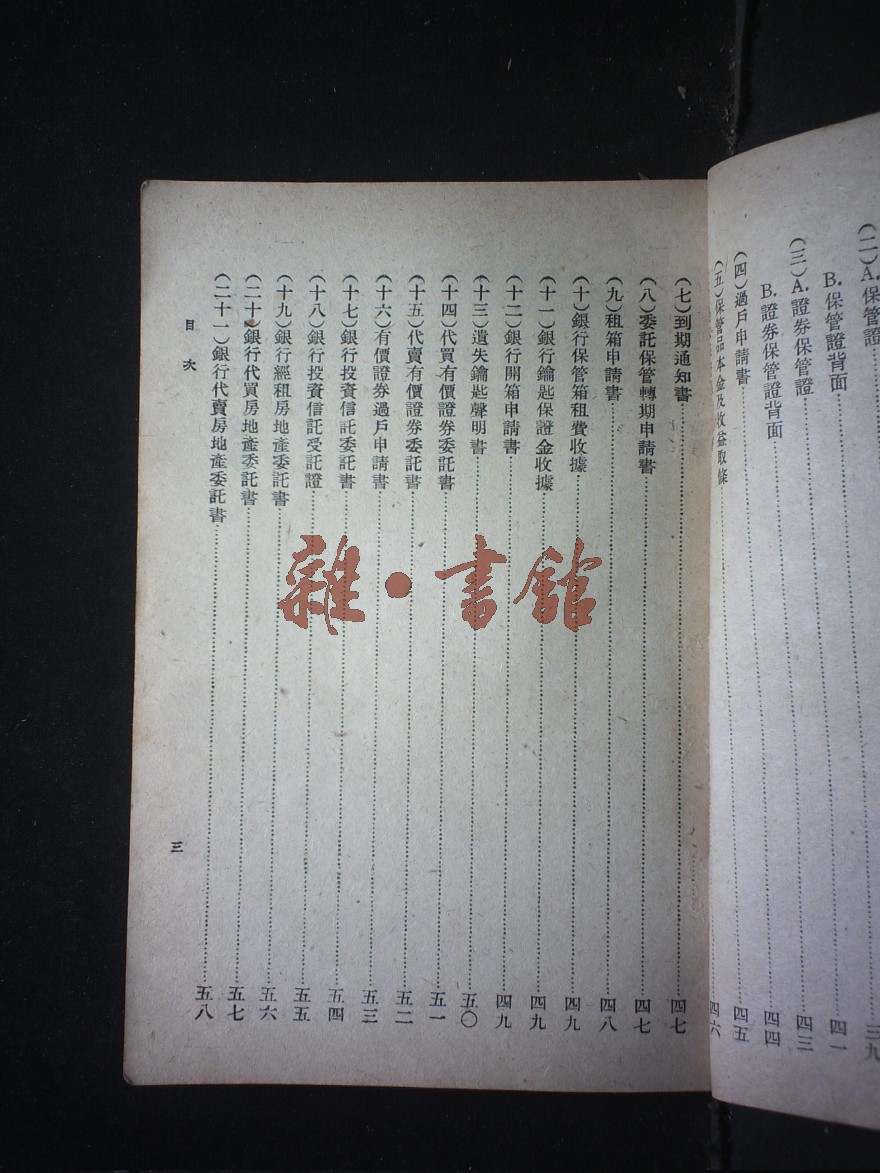 （二）A.保管證……三九
B.保管證背面……四一
（三）A.證券保管證……四三
B.證券保管證背面……四四
（四）過戶申請書……四五
（五）保管品本金及收益取條……四六
（七）到期通知書……四七
（八）委託保管轉期申請書……四七
（九）租箱申請書……四八
（十）銀行保管箱租費收據……四九
（十一）銀行鑰匙保證金收據……四九
（十二）銀行開箱申請書……四九
（十三）遺失鑰匙聲明書……五〇
（十四）代買有價證券委託書……五一
（十五）代賣有價證券委託書……五二
（十六）有價證券過戶申請書……五三
（十七）銀行投資信託委託書……五四
（十八）銀行投資信託受託證……五五
（十九）銀行經租房地產委託書……五六
（二十）銀行代買房地產委託書……五七
（二十一）銀行代賣房地產委託書……五八
目次
三
雜·書館